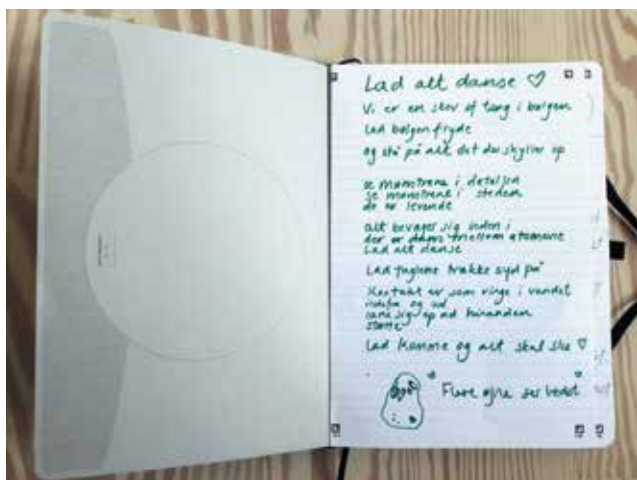 Lad alt danse ♡
Vi er en skov af tang i bølgen
Lad bølgen fryde
og stå på alt det der skyller op
se mønstrene i detaljen
se mønstrene i stenen
de er levende
alt bevæger sig inden i
der er mellem atomerne
Lad alt danse
Lad fuglene trække syd på
Kontakt er som ringe i vandet
indefra og ud
sig op ad hinanden
større
Lad komme og alt skal ske ♡
"Flere øjne ser bedst"